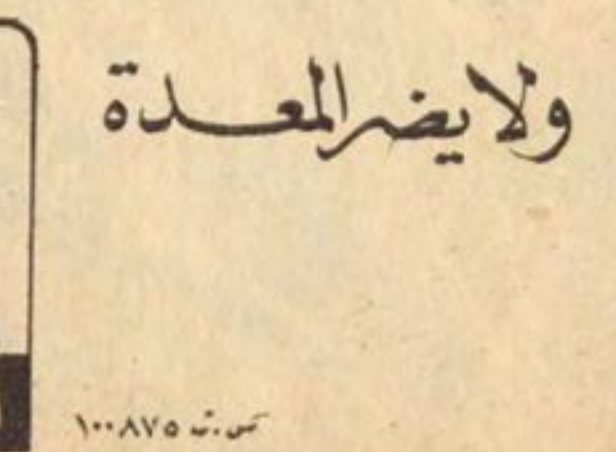 ولا يضر المعدة
س.ت ١٠٠٨٧٥